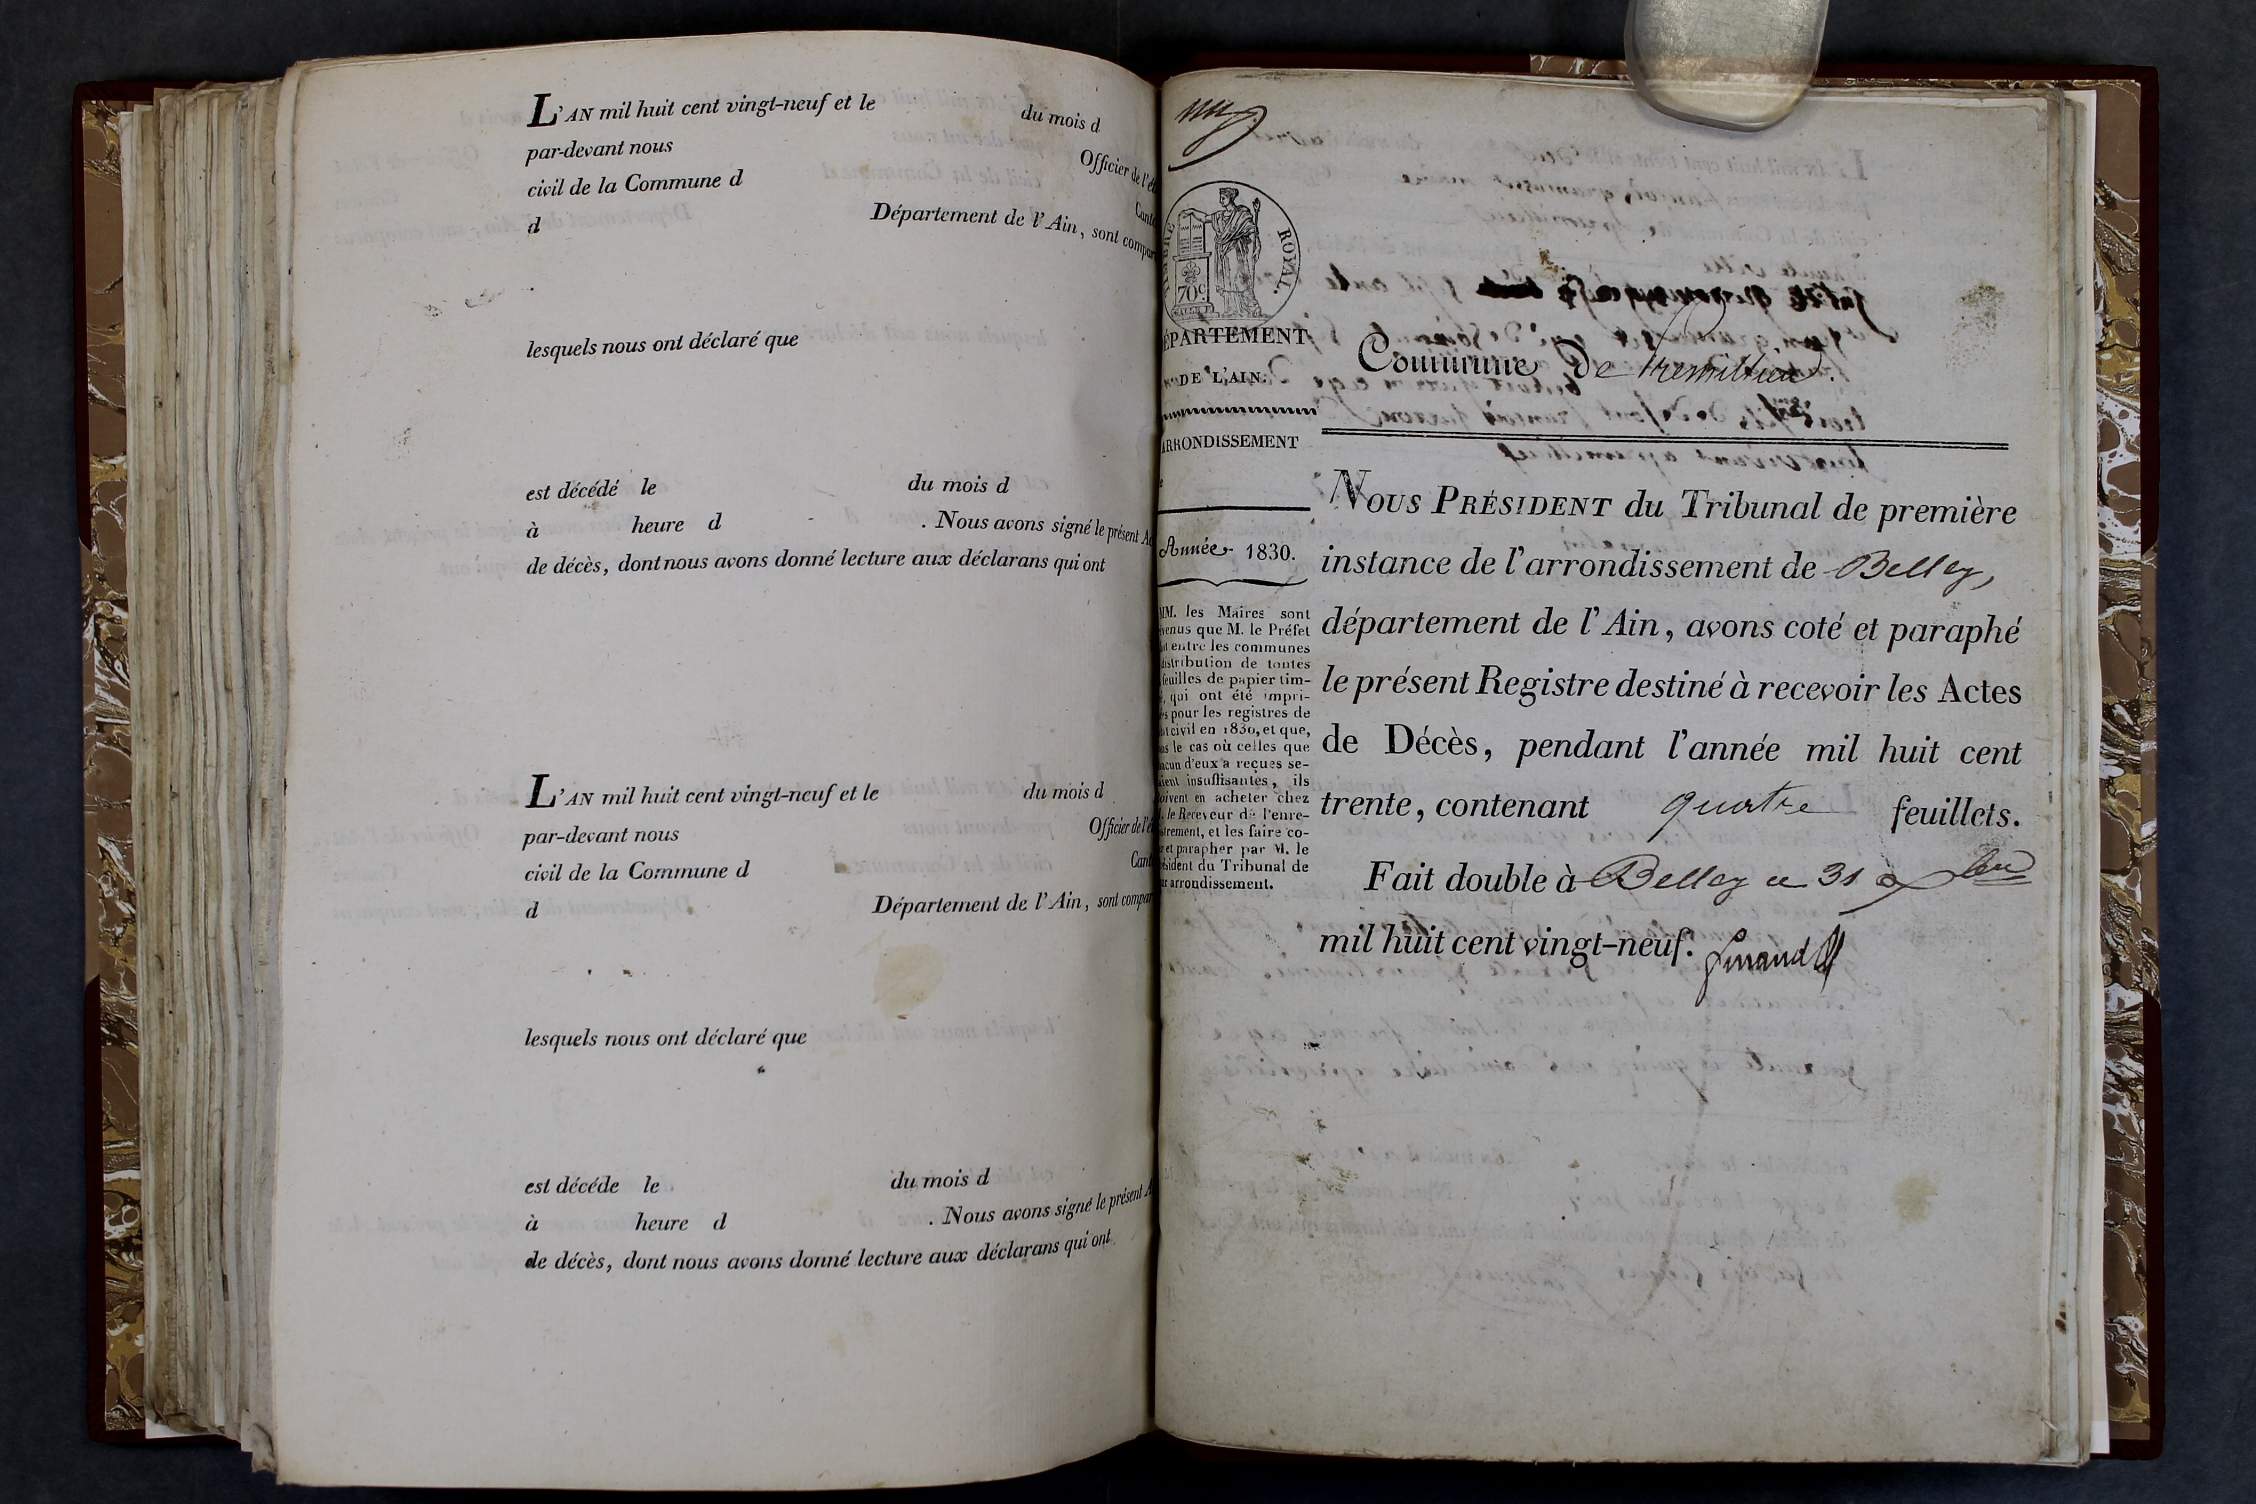 L'AN mil huit cent vingt-neuf et le du mois d
par-devant nous Officier de l'ét
civil de la Commune d Cant
d Département de l'Ain, sont compar
lesquels nous ont déclaré que
est décédé le du mois d
à heure d . Nous avons signé le présent Ac
de décès, dont nous avons donné lecture aux déclarans qui ont
L'AN mil huit cent vingt-neuf et le du mois d
par-devant nous Officier de l'é
civil de la Commune d Cant
d Département de l'Ain, sont compar
lesquels nous ont déclaré que
est décéde le du mois d
à heure d . Nous avons signé le présent A
de décès, dont nous avons donné lecture aux déclarans qui ont
TIMBRE ROYAL.
70c
ÉPARTEMENT
DE L'AIN.
ARRONDISSEMENT
Année 1830.
MM. les Maires sont
venus que M. le Préfet
it entre les communes
distribution de toutes
feuilles de papier tim-
, qui ont été impri-
s pour les registres de
t civil en 1830, et que,
s le cas où celles que
acun d'eux a reçues se-
ient insuffisantes, ils
oivent en acheter chez
. le Receveur de l'enre-
strement, et les faire co-
r et parapher par M. le
ésident du Tribunal de
ur arrondissement.
Commune De
NOUS PRÉSIDENT du Tribunal de première
instance de l'arrondissement de Belley,
département de l'Ain, avons coté et paraphé
le présent Registre destiné à recevoir les Actes
de Décès, pendant l'année mil huit cent
trente, contenant quatre feuillets.
Fait double à Belley ce 31 Xbre
mil huit cent vingt-neuf.